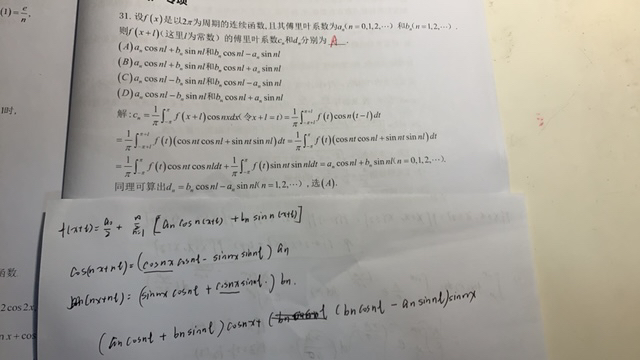 31. 设f(x)是以2π为周期的连续函数,且其傅里叶系数为aₙ(n=0,1,2,⋯)和bₙ(n=1,2,⋯).
(1)=e/n
则f(x+l)(这里l为常数)的傅里叶系数cₙ和dₙ分别为 A .
(A)aₙcosnl+bₙsinnl和bₙcosnl-aₙsinnl
(B)aₙcosnl+bₙsinnl和bₙcosnl+aₙsinnl
(C)aₙcosnl-bₙsinnl和bₙcosnl-aₙsinnl
(D)aₙcosnl-bₙsinnl和bₙcosnl+aₙsinnl
时,
解:cₙ=1/π∫_{-π}^{π}f(x+l)cosnxdx(令x+l=t)=1/π∫_{-π+l}^{π+l}f(t)cosn(t-l)dt
=1/π∫_{-π+l}^{π+l}f(t)(cosntcosnl+sinntsinnl)dt=1/π∫_{-π}^{π}f(t)(cosntcosnl+sinntsinnl)dt
=1/π∫_{-π}^{π}f(t)cosntcosnldt+1/π∫_{-π}^{π}f(t)sinntsinnldt=aₙcosnl+bₙsinnl(n=0,1,2,⋯).
同理可算出dₙ=bₙcosnl-aₙsinnl(n=1,2,⋯),选(A).
cos(nx+nl)=(cosnx cosnl - sinnx sinnl) an
函数.
(nx+nl)=(sinnx cosnl + cosnx sinnl) bn.
2cos2x
(an cosnl + bn sinnl) cosnx + (bn cosnl - an sinnl) sinnx
nx+cos